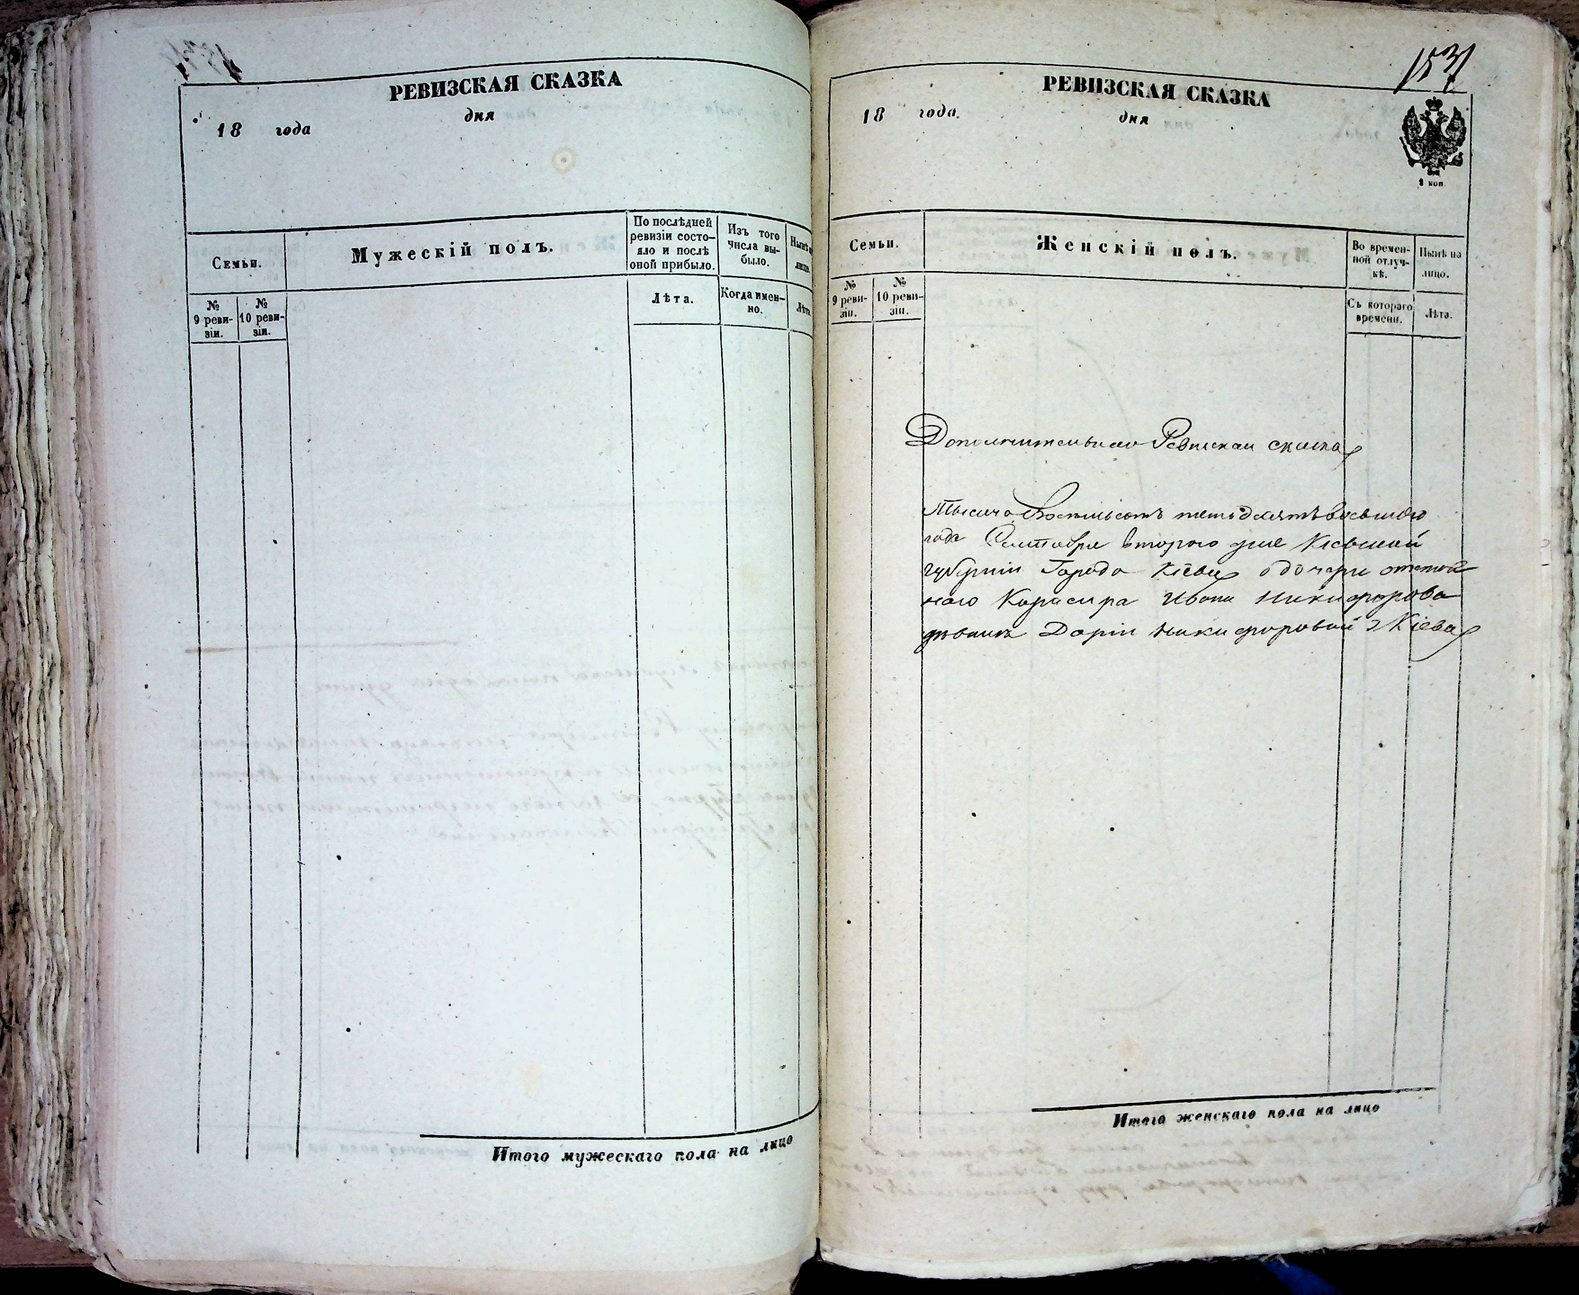 РЕВИЗСКАЯ СКАЗКА
дня
18 года
Семьи.
Мужескій полъ.
По послѣдней ревизіи состо-
яло и послѣ
оной прибыло.
Изъ того
числа вы-
было.
№
9 реви-
зіи.
№
10 реви-
зіи.
Лѣта.
Когда имен-
но.
Итого мужескаго пола на лицо
153
РЕВИЗСКАЯ СКАЗКА
18 года
дня
2 коп
Семьи.
Женскій полъ.
Во времен-
ной отлуч-
кѣ.
Нынѣ на
лицо.
№
9 реви-
зіи.
№
10 реви-
зіи.
Съ котораго
времени.
Лѣта.
Дополнительная Ревизская сказка
Тысяча Восемьсотъ пятьдесятъ восьмаго
года Сентября второго дня Кіевской
губерніи Города Кіева о дочери отстав
наго Ивана Никифорова
Дарьи Никифоровой
Итого женскаго пола на лицо